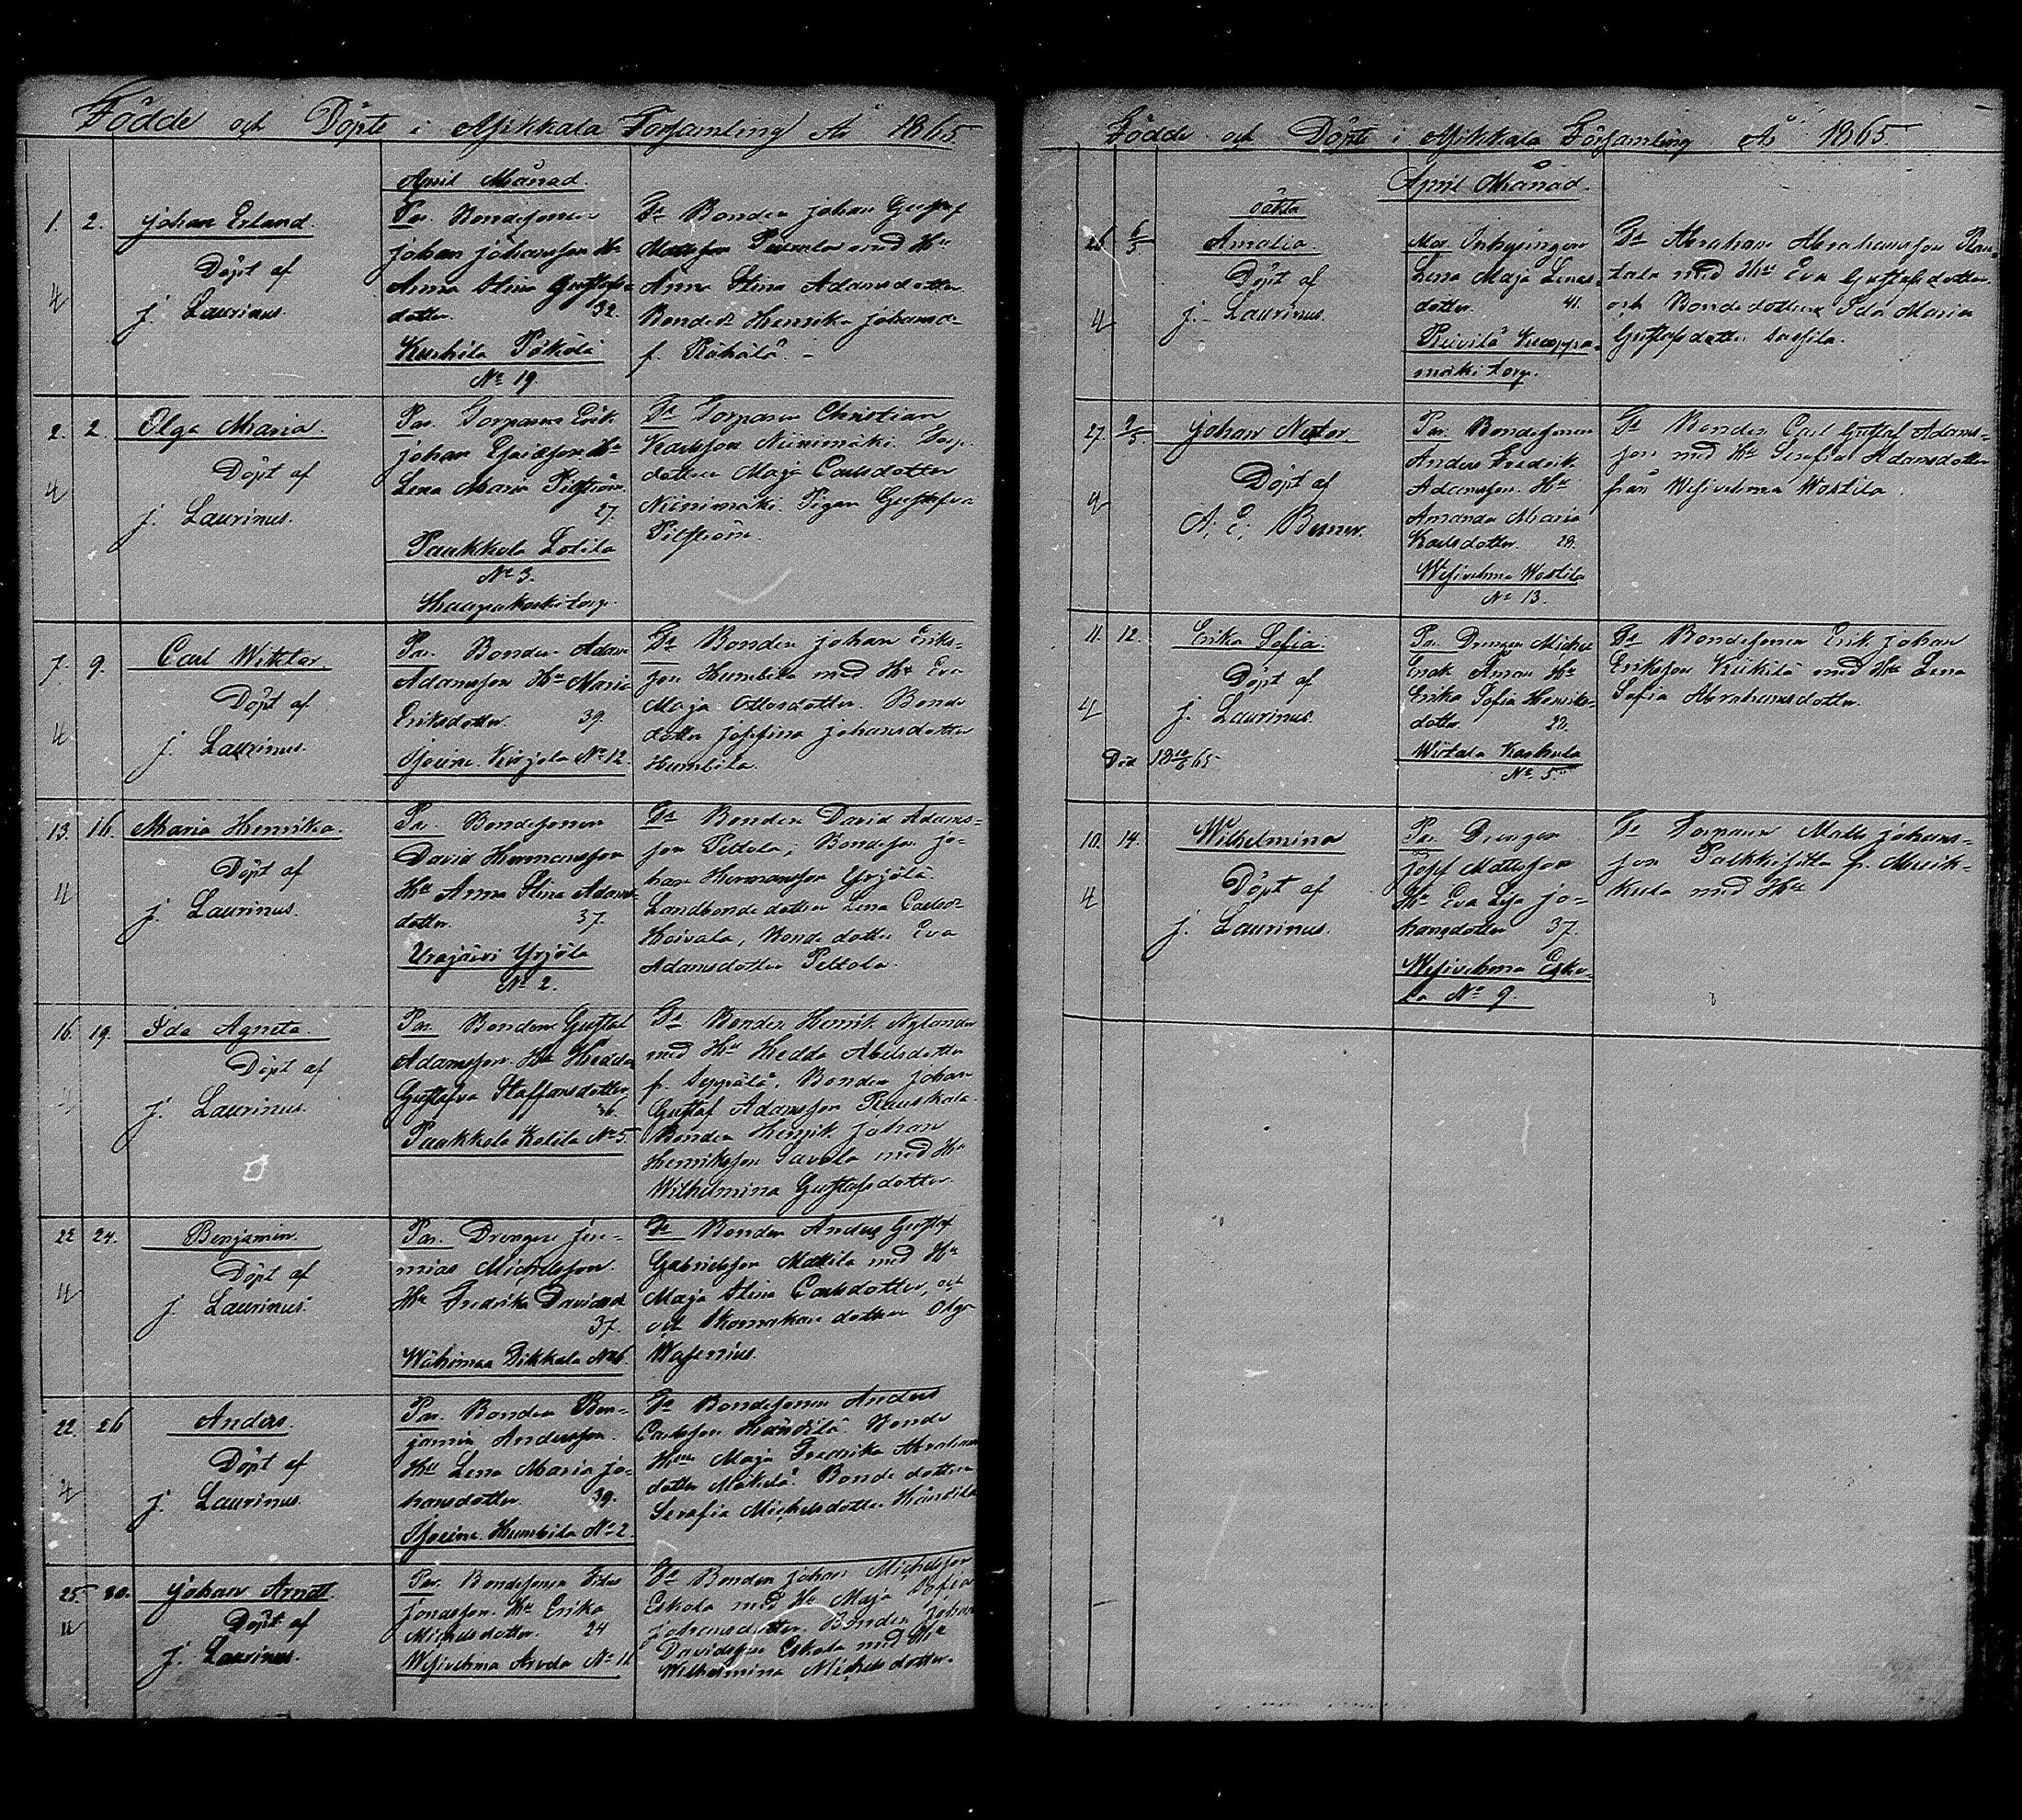 Födde och Döpte i Asikkala Församling År 1865.
April Månad.
1. 2. Johan Erland.
Döpt af
4
J. Laurinus.
Par. Bondesonen
Johan Johansson Hu
Anna Stina Gustafs-
dotter. 32.
Kurhila Pökölä
No 19.
Fr Bonden Johan Gustaf
med Hu
Anna Stina Adamsdotter
Bonded: Henrika Johansd-
f. Rähälä. -
2. 2. Olga Maria.
Döpt af
4
J. Laurinus.
Par. Torparen Erik
Johan Ericsson Hu
Lena Maria
27.
Paakkola Lotila
No 3.
Haapakoski torp.
Fr Torparen Christian
Karlsson Niinimäki. Torp.
dotter Maja Carlsdotter
Niinimäki. Pigan Gustafva
7. 9. Carl Wiktor.
Döpt af
4
J. Laurinus.
Par. Bonden Adam
Adamsson Hu Maria
Eriksdotter. 39.
Kirjola No 12.
Fr Bonden Johan Eriks-
son Humbila med Hu Eva
Maja Ottosdotter. Bonde
dotter Josefina Johansdotter
Humbila.
13. 16. Maria Henrika.
Döpt af
4
J. Laurinus.
Par. Bondesonen
David Hermansson
Hu Anna Stina Adams-
dotter. 37.
Urajärvi Yrjölä
No 2.
Fr Bonden David Adams-
son Peltola; Bondeson Jo-
han Hermansson Yrjölä
Landbonde dotter Lena Carlsd-
Koivala, Bonde dotter Eva
Adamsdotter Peltola.
16. 19. Ida Agneta.
Döpt af
4
J. Laurinus.
Par. Bonden Gustaf
Adamsson. Hu Hedda
Gustafva Staffansdotter
36.
Paakkola Kotila No 5
Fr Bonden Henrik Nylander
med Hu Hedda Abelsdotter
fr. Seppälä. Bonden Johan
Gustaf Adamsson Pauskala.
Bonden Henrik Johan
Henriksson Savola med Hu
Wilhelmina Gustafsdotter.
22 24. Benjamin.
Döpt af
4
J. Laurinus.
Par. Drengen Jere-
mias Michelsson.
Hu Fredrika Davidsd
37.
Wähimaa Dikkala No 6.
Fr Bonden Anders Gustaf
Gabrielsson Mattila med Hu
Maja Stina Carlsdotter, och
Skomakare dotter Olga
Wasenius.
22. 26 Anders.
Döpt af
4
J. Laurinus.
Par. Bonden Ben-
jamin Andersson.
Hu Lena Maria Jo-
hansdotter. 39.
Humbila No 2.
Fr Bondesonen Anders
Carlsson Händilä. Bonde
Hun Maja Fredrika Abrahams
dotter Mäkelä. Bonde dotter
Serafia Michelsdotter Händilä
25. 30. Johan Arndt.
Döpt af
4
J. Laurinus.
Par. Bondesonen Titus
Jonasson. Hu Erika
Michelsdotter. 24
Wesivehma Arvela No 11
Fr Bonden Johan Michelsson
Eskola med Hu Maja Sofia
Johansdotter. Bonden Johan
Davidsson Eskola med Hu
Wilhelmina Michelsdotter.
Födde och Döpte i Asikkala Församling År 1865
April Månad.
oäkta
26 6/5 Amalia.
Döpt af
4
J. Laurinus.
Mor. Inhysingen
Lena Maja Lenas-
dotter. 41.
mäki torp.
Fr Abraham Abrahamsson Rau-
tala med Hu Eva Gustafsdotter.
och Bondedottren Ida Maria
Gustafsdotter Sassila.
27. 9/5. Johan Nestor.
Döpt af
4
A. E. Berner.
Par. Bondesonen
Anders Fredrik
Adamsson. Hu
Amanda Maria
Karlsdotter. 28.
Wesivehma Wostila
No 13.
Fr Bonden Carl Gustaf Adams-
son med Hu Serafia Adamsdotter
från Wesivehma Wostila.
11. 12. Erika Sofia.
Döpt af
4
J. Laurinus.
Död 18 10/6 65
Par. Drengen Michel
Enok Aman Hu
Erika Sofia Henriks-
dotter 22.
Kaskula
No 5.
Fr Bondesonen Erik Johan
Eriksson Kiikilä med Hu Lena
Sofia Abrahamsdotter.
10. 14. Wilhelmina
Döpt af
4
J. Laurinus.
Par Drengen
Josef Mattsson
Hu Eva Lisa Jo-
hansdotter 37.
Wesivehma Esko-
la No 9.
Fr Torparen Matts Johans-
son Palkkisilta fr. Musik-
kula med Hu